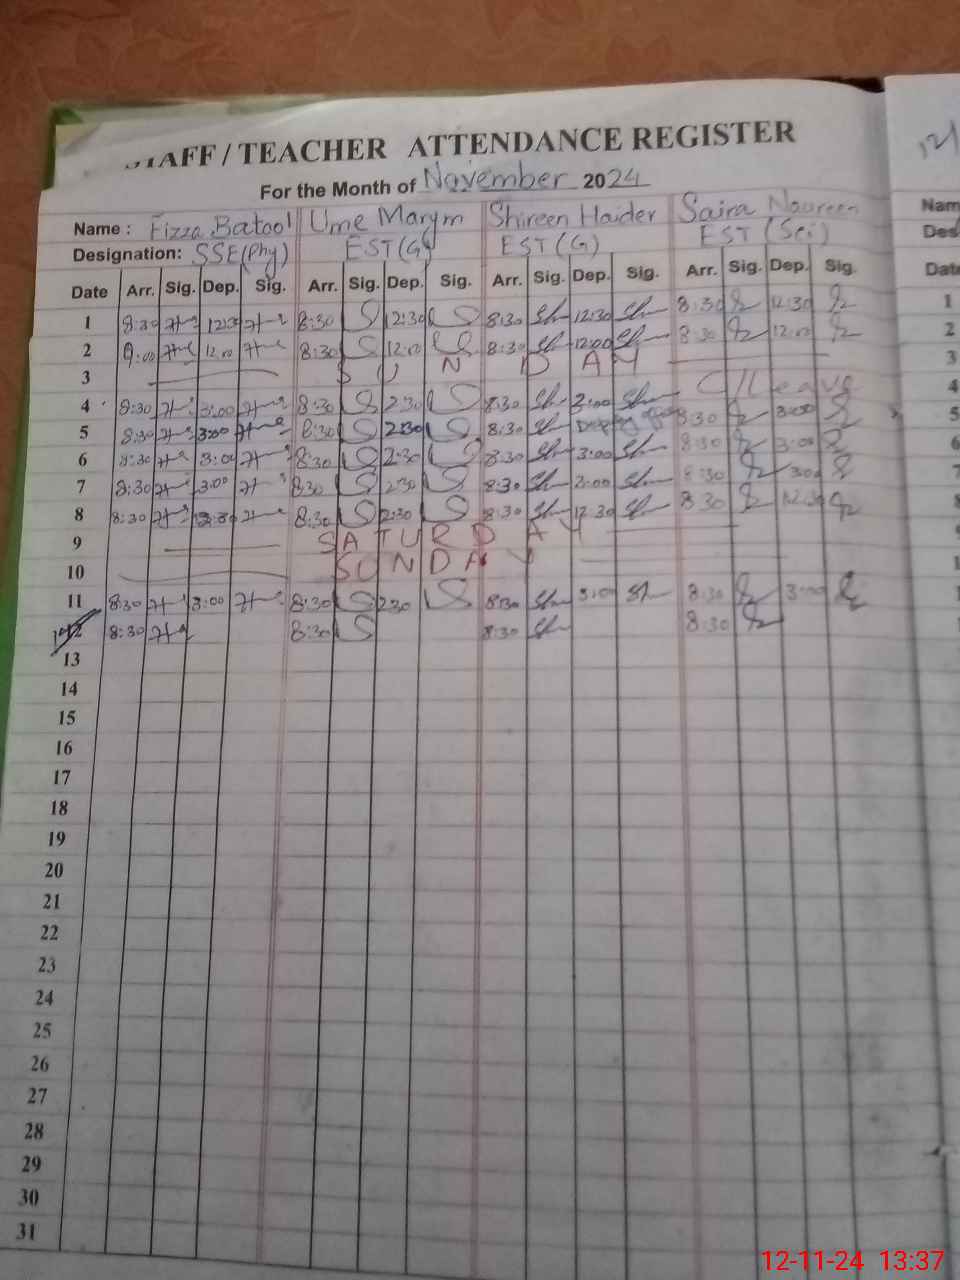 STAFF / TEACHER ATTENDANCE REGISTER
For the Month of November 2024
Name : Fizza Batool Ume Marym Shireen Haider Saira Noureen Nam
Designation: SSE(Phy) EST(G) EST(G) EST (Sci) Des
Date Arr. Sig. Dep. Sig. Arr. Sig. Dep. Sig. Arr. Sig. Dep. Sig. Arr. Sig. Dep. Sig. Date
1 8:30 12:30 8:30 12:30 8:30 12:30 8:30 12:30 1
2 9:00 12:00 8:30 12:00 8:30 12:00 8:30 12:00 2
3 SUNDAY 3
4 8:30 3:00 8:30 2:30 8:30 3:00 C/Leave 4
5 8:30 3:00 8:30 2:30 8:30 8:30 3:00 5
6 8:30 3:00 8:30 2:30 8:30 3:00 8:30 3:00 6
7 8:30 3:00 8:30 2:30 8:30 3:00 8:30 3:00 7
8 8:30 8:30 2:30 8:30 12:30 8:30 12:30 8
9 SATURDAY
10 SUNDAY
11 8:30 3:00 8:30 2:30 8:30 3:00 8:30 3:00
12 8:30 8:30 8:30 8:30
13
14
15
16
17
18
19
20
21
22
23
24
25
26
27
28
29
30
31
12-11-24 13:37